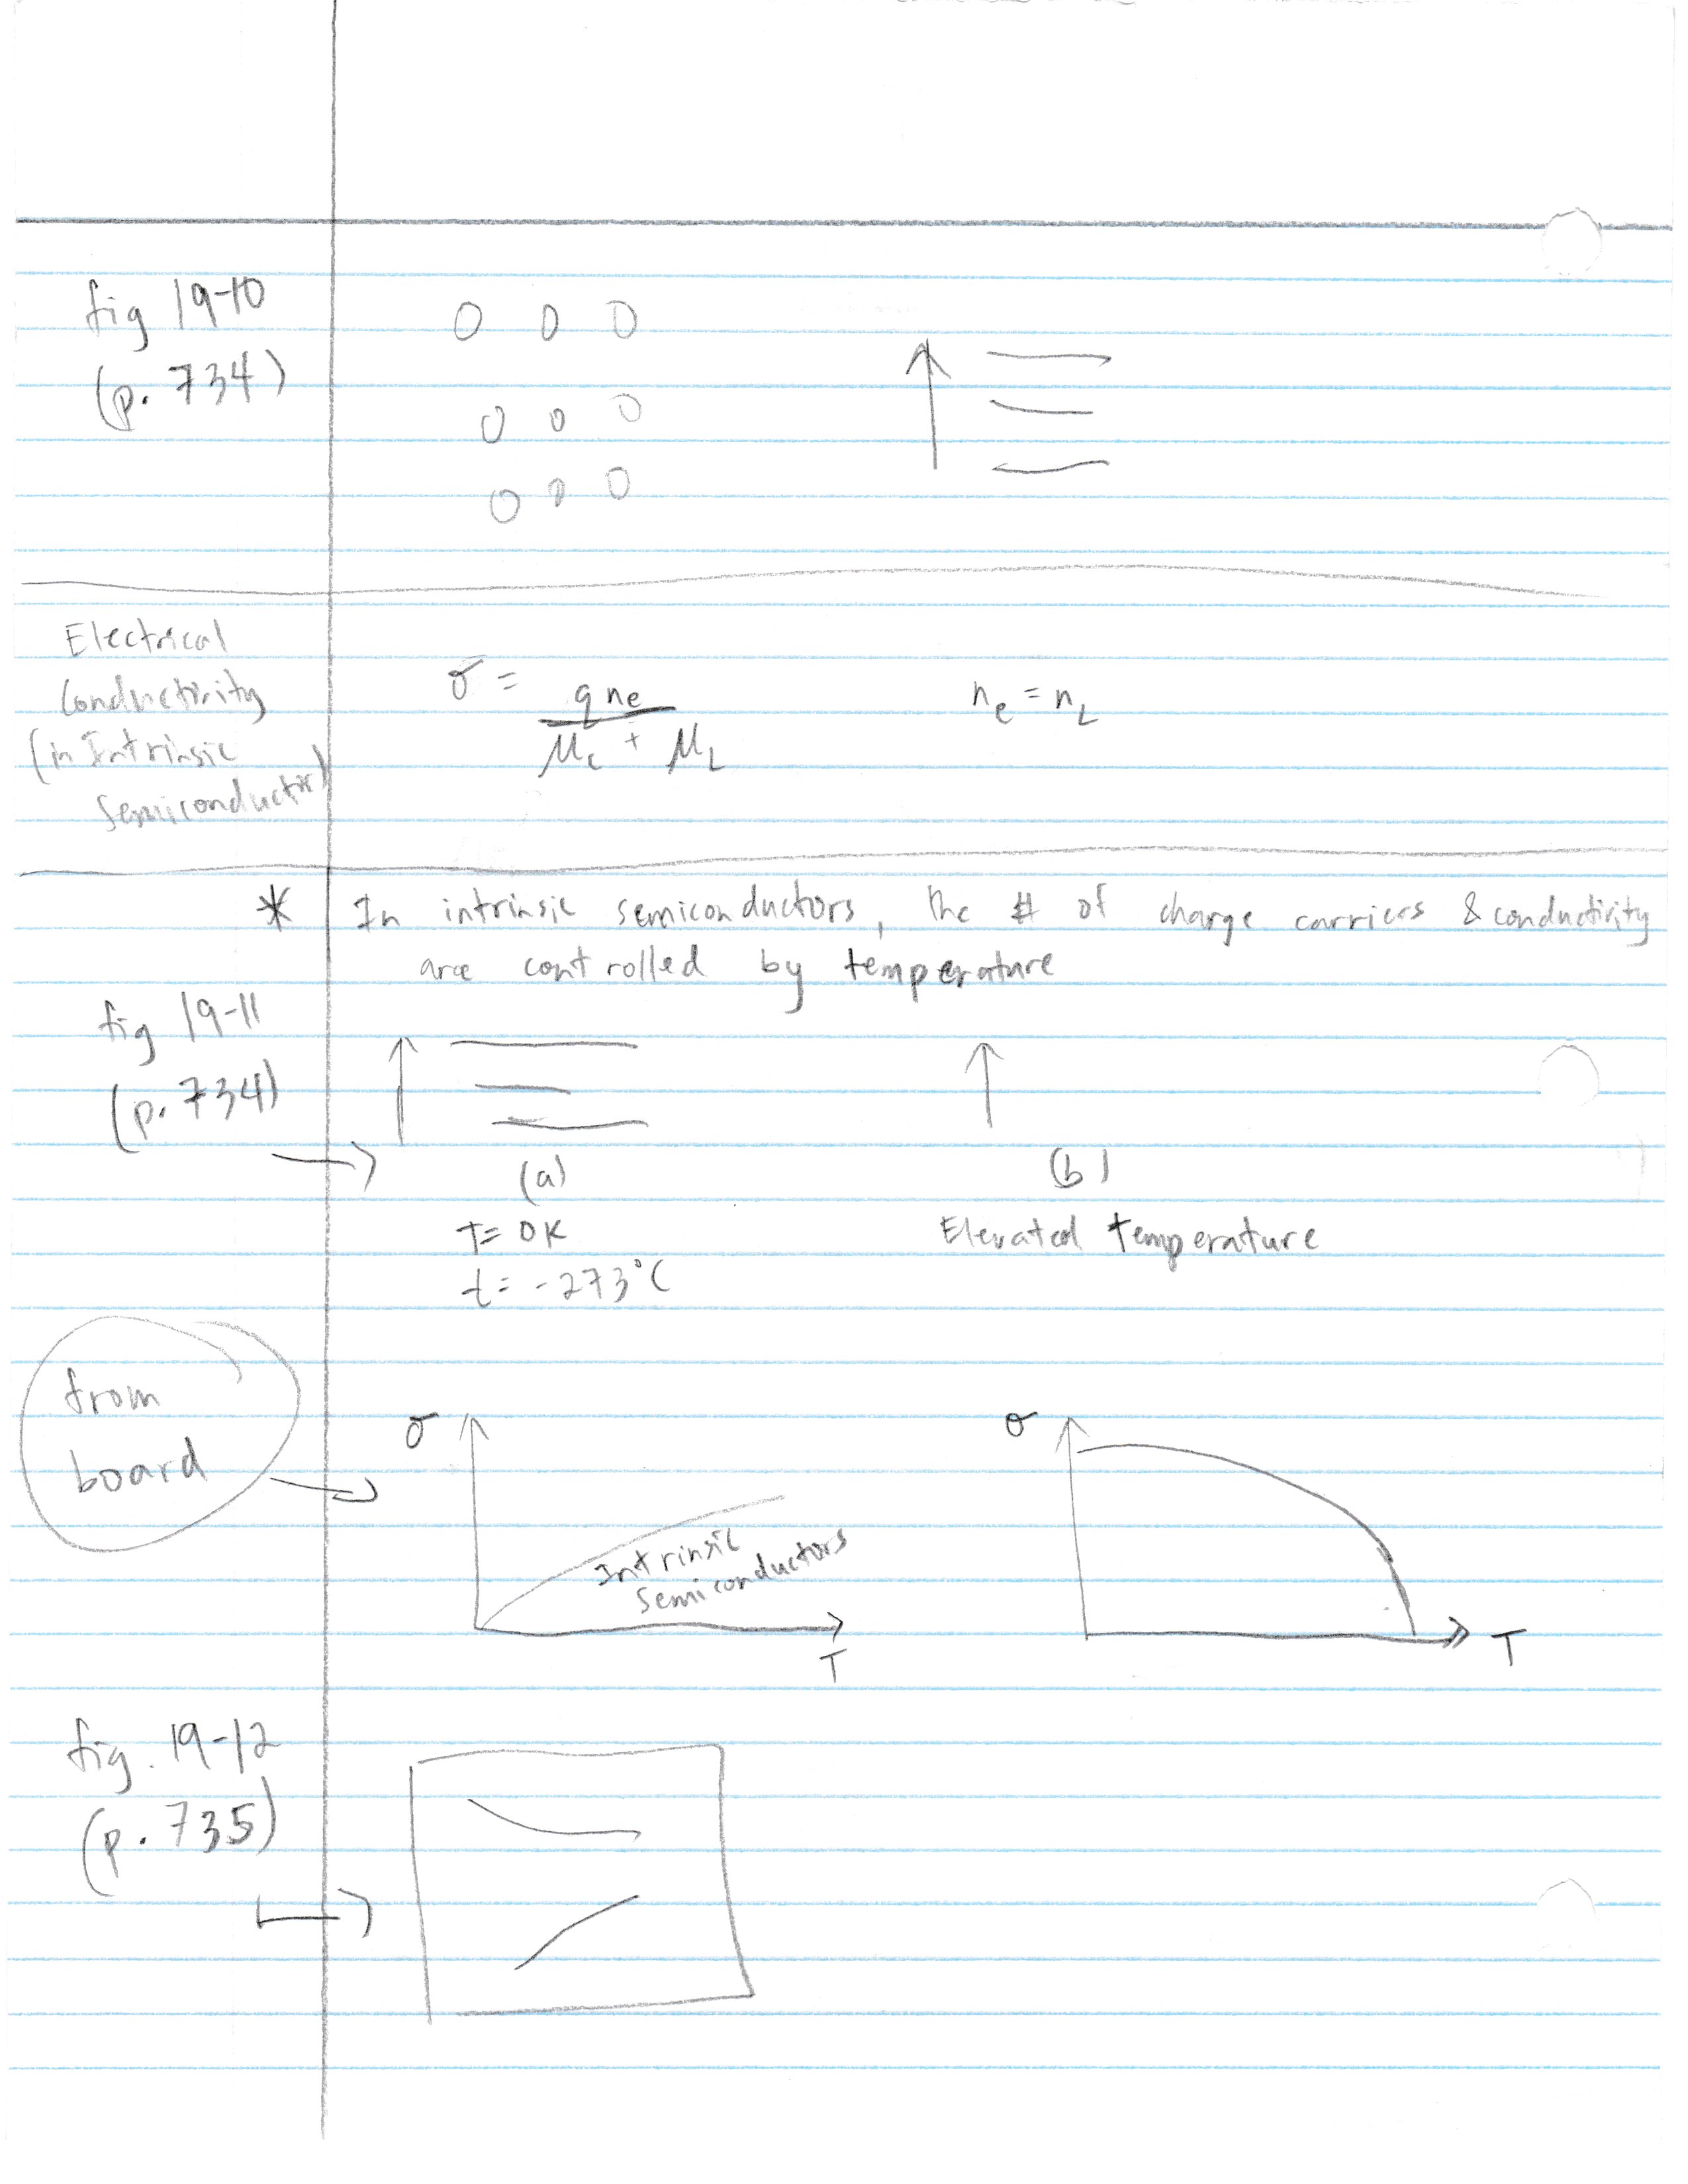 fig 19-10
(p. 734)
Electrical
Conductivity
(in Intrinsic
Semiconductor)
σ = q ne
μc + μL
ne = nL
* In intrinsic semiconductors, the # of charge carriers & conductivity
are controlled by temperature
fig 19-11
(p. 734)
(a)
(b)
T = 0K
Elevated temperature
t = -273°C
from
board
σ
Intrinsic
Semiconductors
T
σ
T
fig. 19-12
(p. 735)